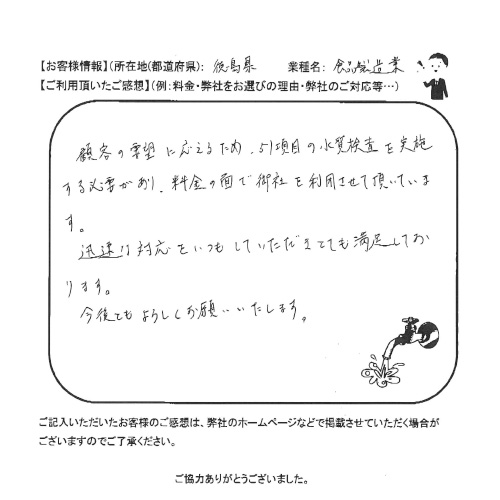 【お客様情報】(所在地(都道府県): 徳島県 業種名: 食品製造業
【ご利用頂いたご感想】(例:料金・弊社をお選びの理由・弊社のご対応等…)
顧客の要望に応えるため、51項目の水質検査を実施
する必要があり、料金の面で御社を利用させて頂いていま
す。
迅速な対応をいつもしていただきとても満足してお
ります。
今後ともよろしくお願いいたします。
ご記入いただいたお客様のご感想は、弊社のホームページなどで掲載させていただく場合が
ございますのでご了承ください。
ご協力ありがとうございました。